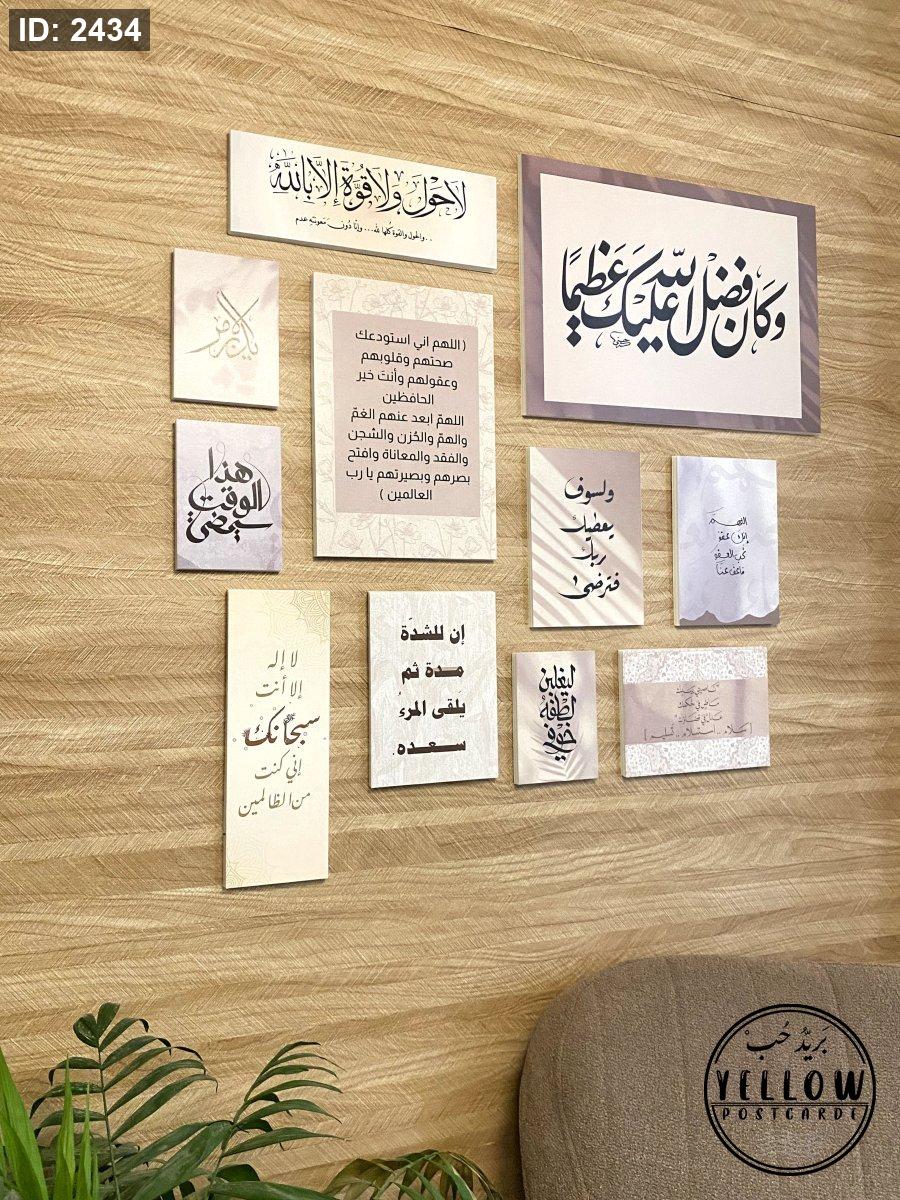 ID: 2434
لَا حَوْلَ وَلَا قُوَّةَ إِلَّا بِاللَّهِ
..والحول والقوة كلها لله... وإنا دُون مَعونتهِ عدم
وَكَان فَضْل اللّه عَليْكَ عَظِيمًا
( اللهم اني استودعك
صحتهم وقلوبهم
وعقولهم وأنتَ خير
الحافظين
اللهمّ ابعد عنهم الغمّ
والهمّ والحُزن والشجن
والفقد والمعاناة وافتح
بصرهم وبصيرتهم يا رب
العالمين )
هذا
الوقت
سيمضي
ولسوف
يعطيك
ربك
فترضى
اللهم
إنك عفو
تحب العفو
فاعف عنا
لا إله
إلا أنت
سبحانك
إني كنت
من الظالمين
إن للشدَة
مدة ثم
يَلقى المرءُ
سعده.
ليغلبن
لطفه
خوفي
ناصيتي بيدك
ماضٍ في حكمك
عدل في قضاؤك
بَريدُ حُبْ
YELLOW
POSTCARDE